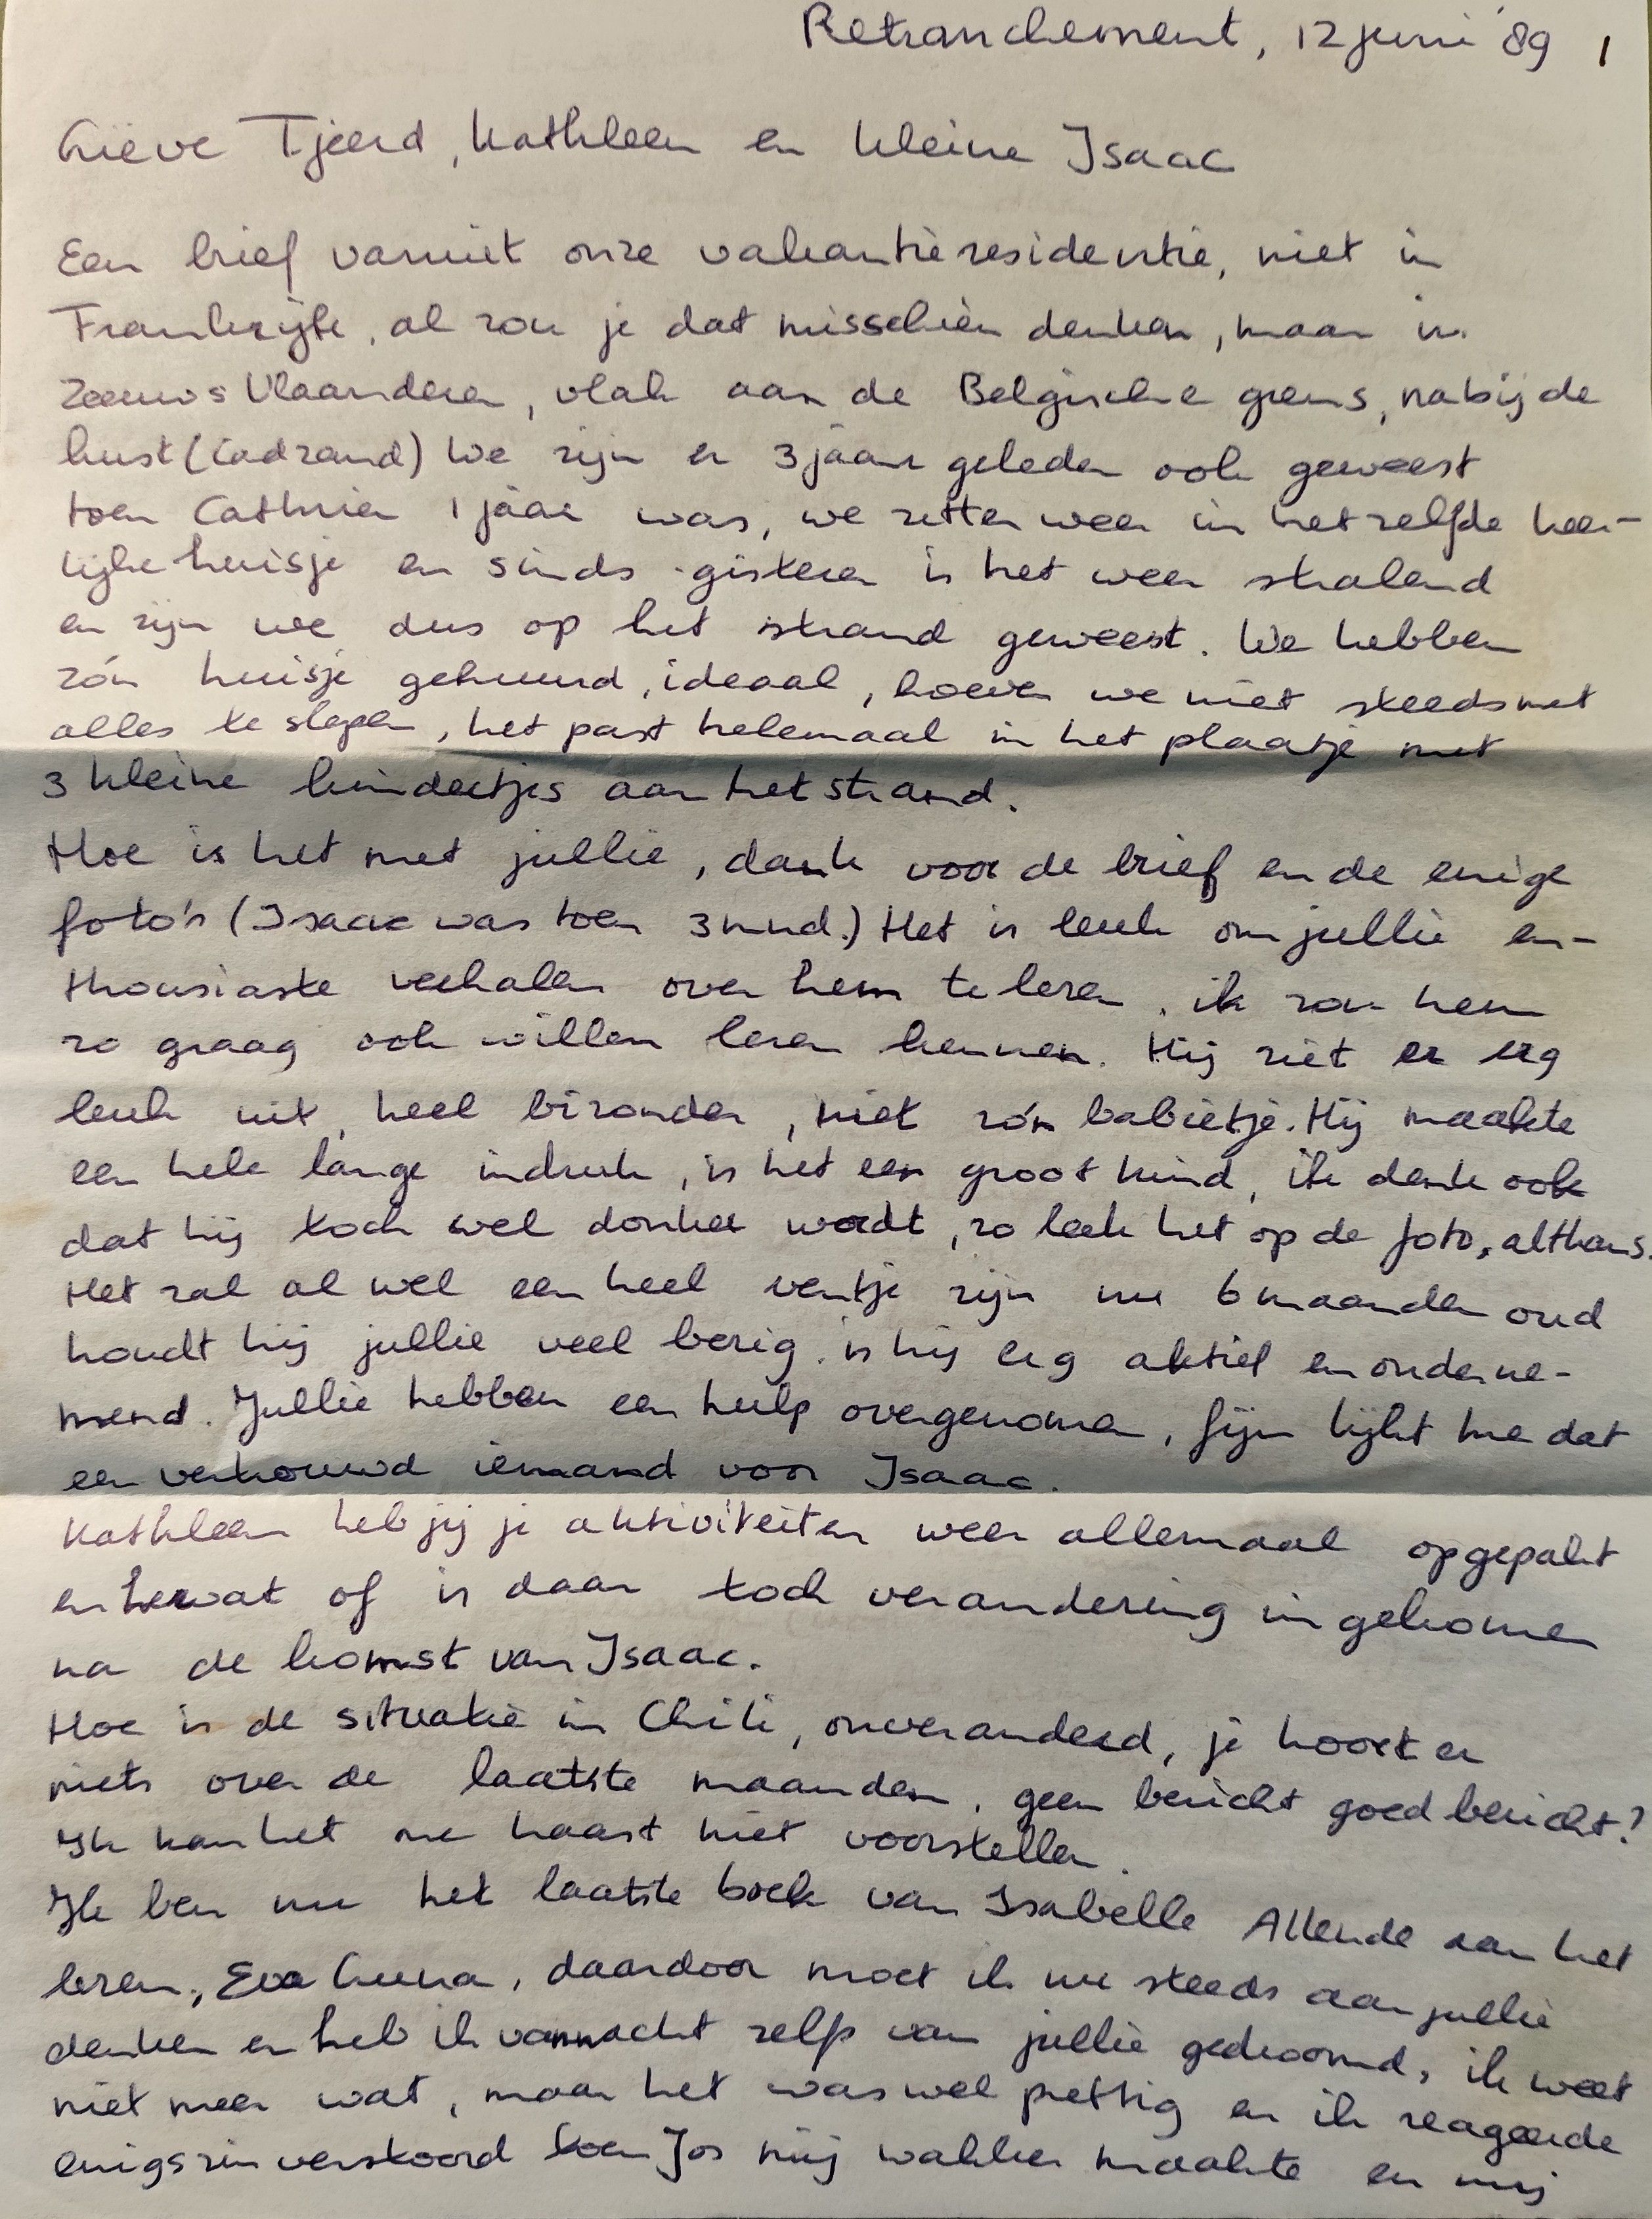 Retranchement, 12 juni '89 1
Lieve Tjeerd, Kathleen en kleine Isaac
Een brief vanuit onze vakantieresidentie, niet in
Frankrijk, al zou je dat misschien denken, maar in
Zeeuws Vlaanderen, vlak aan de Belgische grens, nabij de
kust (Cadzand) We zijn er 3 jaar geleden ook geweest
toen Cathrien 1 jaar was, we zitten weer in hetzelfde heer-
lijke huisje en sinds gisteren is het weer stralend
en zijn we dus op het strand geweest. We hebben
zó'n huisje gehuurd, ideaal, hoeven we niet steeds met
alles te slepen, het past helemaal in het plaatje met
3 kleine kindertjes aan het strand.
Hoe is het met jullie, dank voor de brief en de enige
foto's (Isaac was toen 3 mnd.) Het is leuk om jullie en-
thousiaste verhalen over hem te lezen, ik zou hem
zo graag ook willen leren kennen. Hij ziet er erg
leuk uit, heel bizonder, niet zó'n babietje. Hij maakte
een hele lange indruk, is het een groot kind, ik denk ook
dat hij toch wel donker wordt, zo leek het op de foto, althans.
Het zal al wel een heel ventje zijn nu 6 maanden oud
houdt hij jullie veel bezig, is hij erg aktief en onderne-
mend. Jullie hebben een hulp overgenomen, fijn lijkt me dat
een vertrouwd iemand voor Isaac.
Kathleen heb jij je aktiviteiten weer allemaal opgepakt
en hervat of is daar toch verandering in gekomen
na de komst van Isaac.
Hoe is de situatie in Chili, onveranderd, je hoort er
niets over de laatste maanden, geen bericht goed bericht?
Ik kan het me haast niet voorstellen.
Ik ben nu het laatste boek van Isabelle Allende aan het
lezen, Eva Luna, daardoor moet ik nu steeds aan jullie
denken en heb ik vannacht zelfs van jullie gedroomd, ik weet
niet meer wat, maar het was wel prettig en ik reageerde
enigszin verstoord toen Jos mij wakker maakte en mij